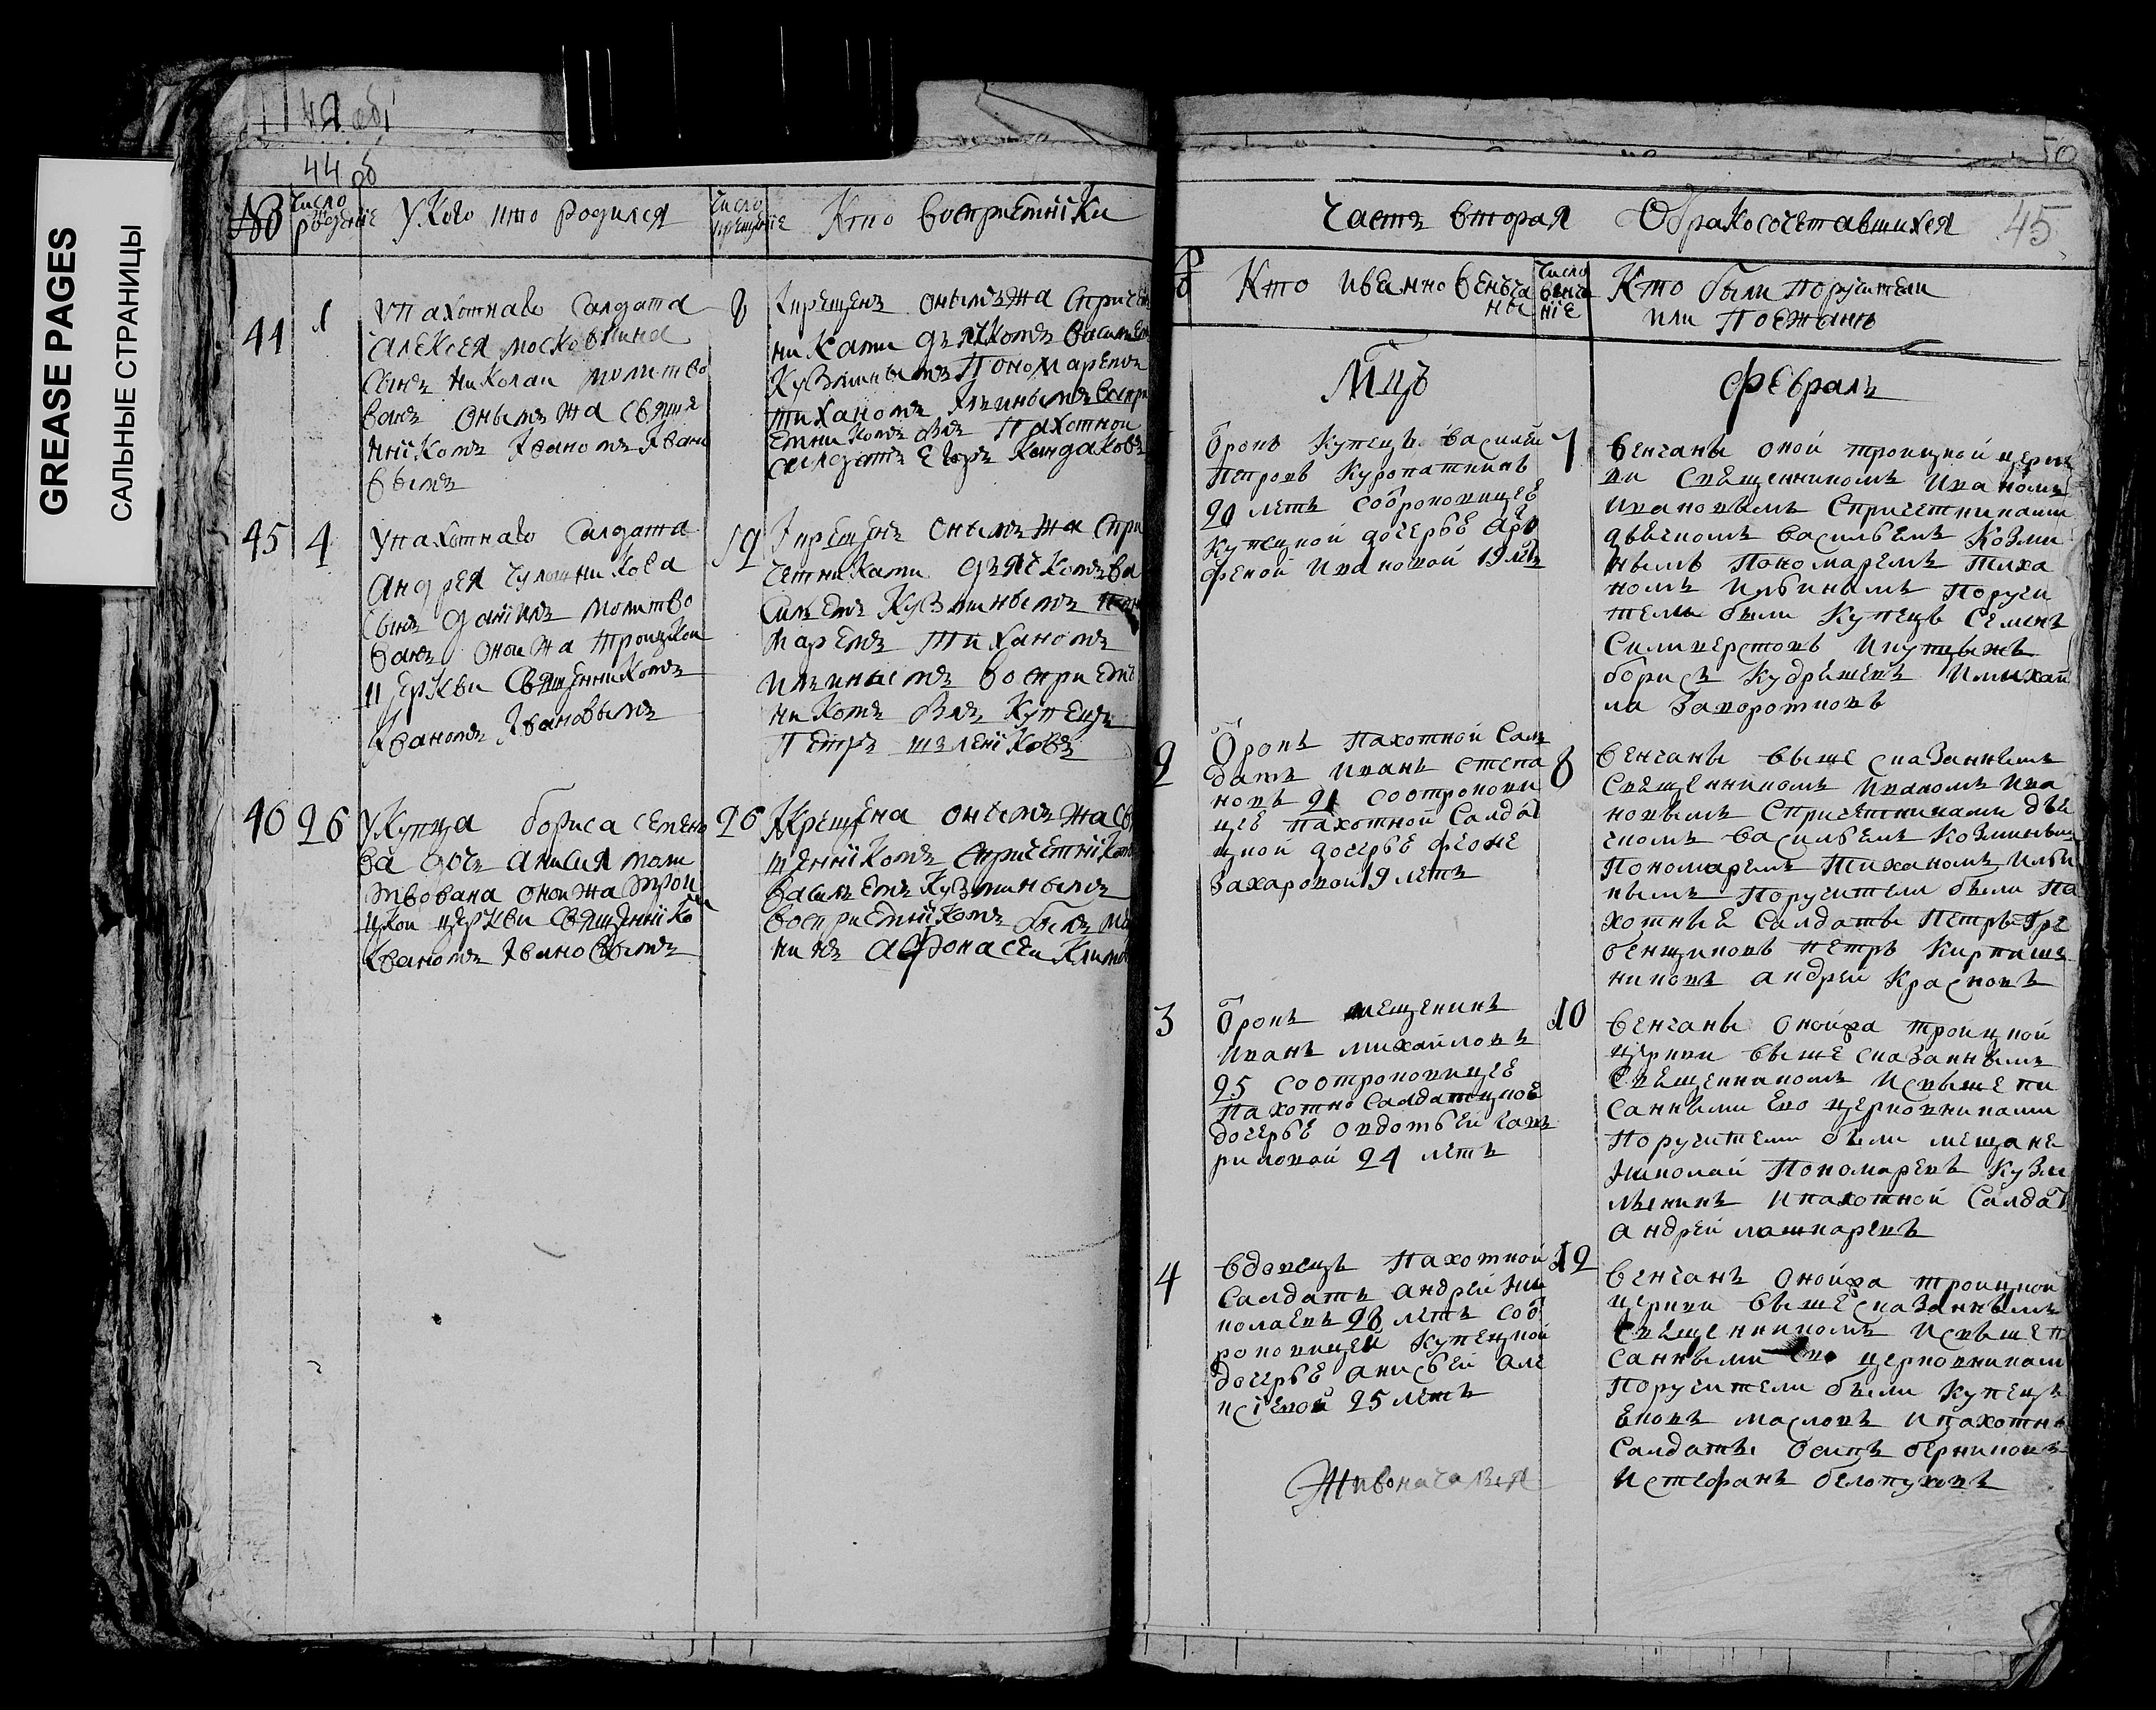 GREASE PAGES
САЛЬНЫЕ СТРАНИЦЫ
44 об
№
Число рождение
У Кого кто Родился
Число крещение
Кто воспрiемнiки
44
1
У пахотнаго Салдата
Алексея московкина
Сынъ николаи молитво
ванъ онымъ жа свяще
ннiкомъ Iваномъ Iвано
вымъ
8
Крещенъ онымъ жа спричет
никами дьячкомъ василием
Кузминымъ Пономаремъ
тиханомъ Илинымъ воспри
емникомъ былъ Пахотнои
салдатъ Егоръ Кандаковъ
45
4
У пахотнаго Салдата
Андрея чулошникова
Сынъ данiилъ молитво
ванъ онои жа троицкои
церкви священникомъ
Iваномъ Iвановымъ
12
Крещенъ онымъ жа спри
четниками дьячкомъ ва
силемъ Кузминымъ поно
маремъ тиханомъ
илинымъ воспрiемъ
никомъ былъ Купецъ
Петръ
46
26
У Купца бориса семено
ва дочь анисия моли
твована онои жа трои
цкои церкви священнiко
Iваномъ Iвановымъ
26
Крещена онымъ жа свя
щеннiкомъ спричетнiком
васильемъ Кузминымъ
воспрiемнiкомъ былъ мѣ
нинъ Афонасеи Климо
50
Часть вторая О бракосочетавшихся
45
№
Кто иванно венча
ны
Число
венча
нiе
Кто были поручители
или Поежанъ
Мцъ февраль
1
брокъ купецъ василеи
Петровъ Куропаткинъ
20 летъ соброковицеѣ
купецкой дочерьѣ авъ
феной Ивановой 19 летъ
7
венчаны оной троицкой церк
ви священникомъ Иваномъ
Ивановымъ спричетниками
дьячкомъ васильемъ Козми
нымъ пономаремъ тиха
номъ Ильинымъ Поручи
тели были купецъ Семенъ
Силиверстовъ
борисъ Кудрешевъ и михаи
ла Заворотновъ
2
брокъ пахотной Сал
датъ Иванъ степа
новъ 21 соотрокови
цеѣ пахотной Салдат
цкой дочерьѣ феоне
Захаровой 19 летъ
8
венчаны выше сказаннымъ
священникомъ Иваномъ Ива
новымъ спричетниками дья
чкомъ васильемъ Козминым
пономаремъ тиханомъ Ильи
нымъ поручители были па
хотные Салдаты Петръ Гре
бенщиковъ петръ Кирпише
никовъ андрей Красновъ
3
брокъ мещенинъ
Иванъ михаиловъ
25 соотроковицеѣ
пахотно Салдатцкоѣ
дочерьѣ овдотьей гавъ
риловой 24 летъ
10
венчаны онойжа троицкой
церкви выше сказаннымъ
священникомъ исвыше пи
санными Ево церковниками
поручители были мещане
Николай Пономаревъ Кузм
менинъ ипахотной Салдат
андрей лошкаревъ
4
вдовецъ пахотной
Салдатъ андрей ни
колаевъ 28 летъ соот
роковицей купецкой
дочерьѣ анисьей але
ксiевой 25 летъ
12
венчанъ онойжа троицкой
церкви выше сказаннымъ
священникомъ исвыше п
санными Ево церковникам
поручители были купецъ
Еновъ масловъ ипахотны
Салдаты осипъ
истефанъ белопуховъ
Живоначалныя